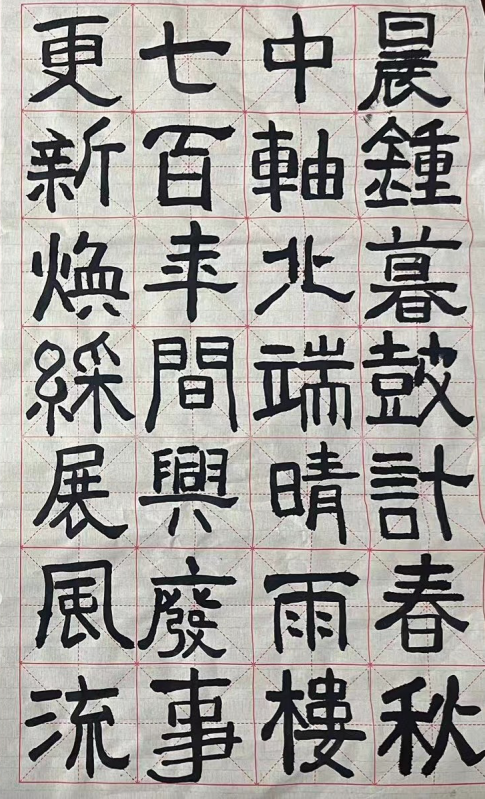 晨鍾暮鼓計春秋
中軸北端晴雨樓
七百年間興廢事
更新煥綵展風流